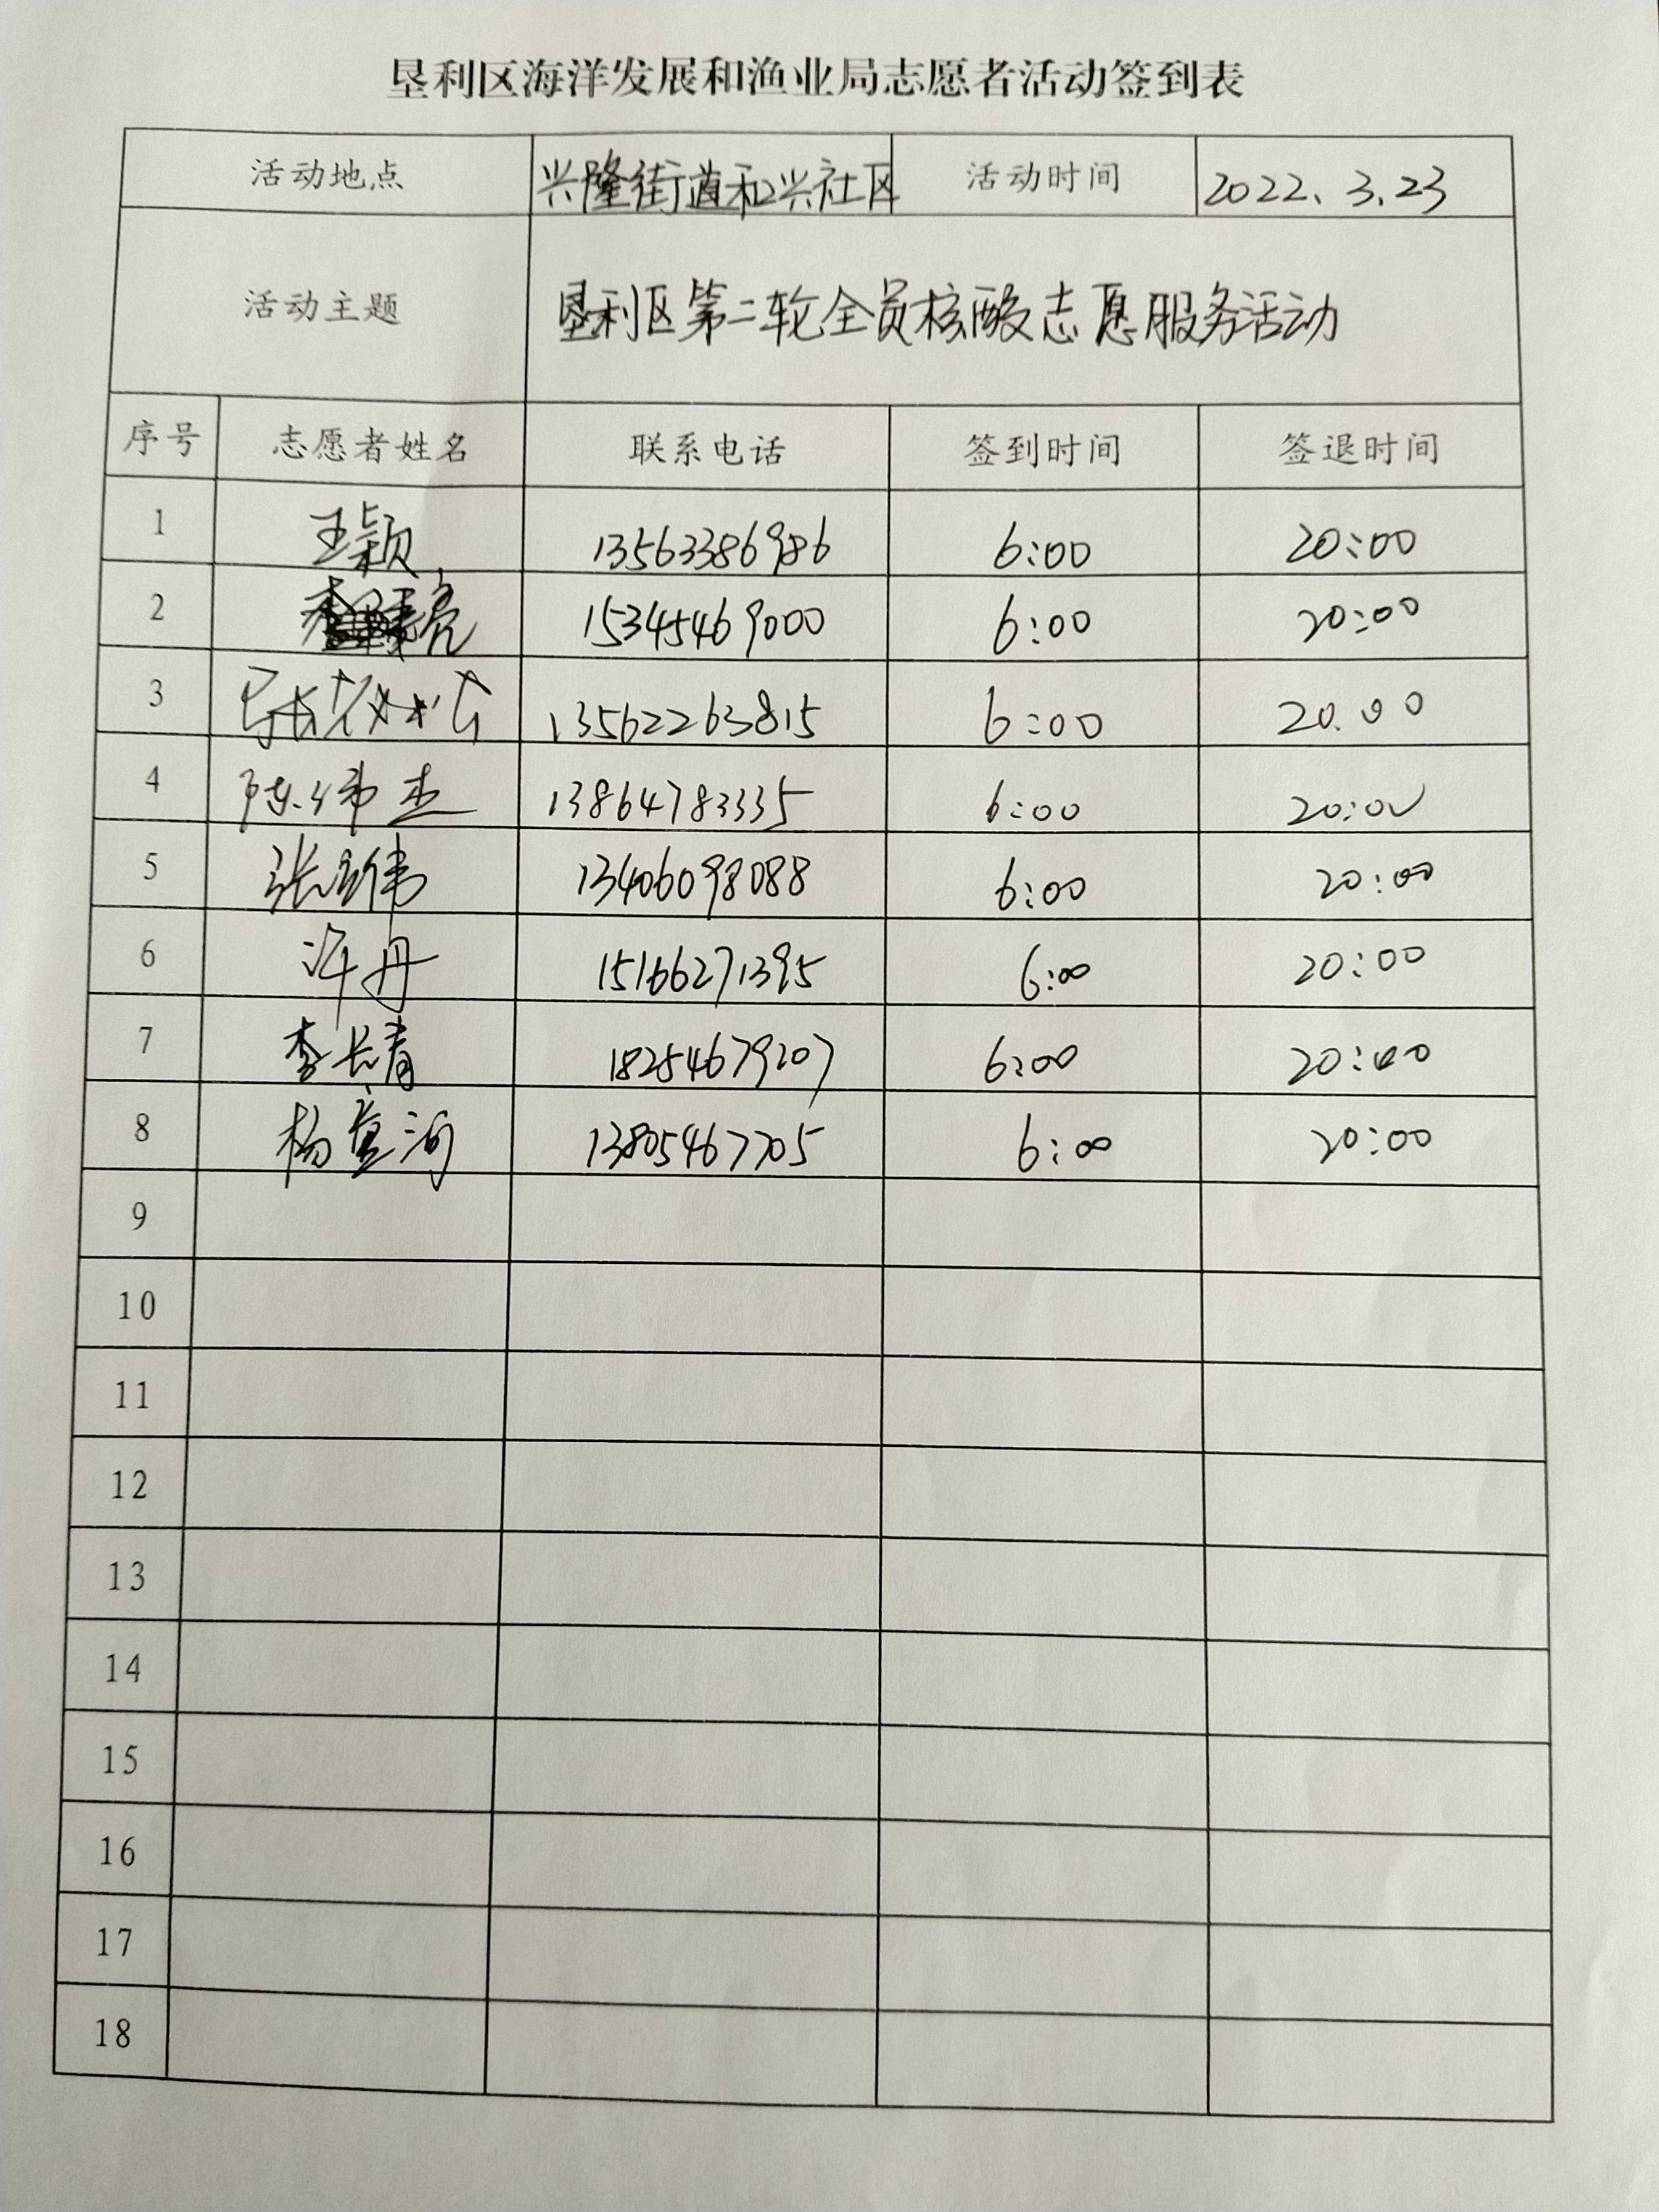 垦利区海洋发展和渔业局志愿者活动签到表
活动地点 兴隆街道和兴社区 活动时间 2022、3.23
活动主题 垦利区第二轮全员核酸志愿服务活动
序号 志愿者姓名 联系电话 签到时间 签退时间
1 王颖 13563386986 6:00 20:00
2 15345469000 6:00 20:00
3 13562263815 6:00 20.00
4 陈炜杰 13864783335 6:00 20:00
5 张伟 13406098088 6:00 20:00
6 许丹 15166271395 6:00 20:00
7 李长青 18254679207 6:00 20:00
8 杨宜河 13805467705 6:00 20:00
9
10
11
12
13
14
15
16
17
18